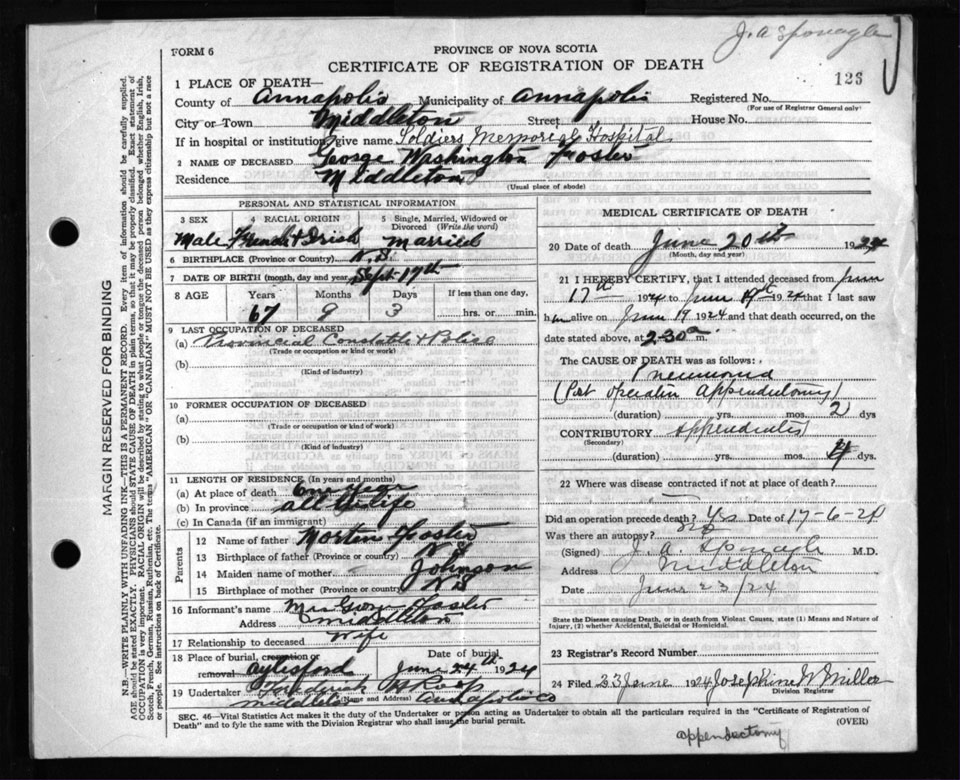 J. A. Sponagle
FORM 6
PROVINCE OF NOVA SCOTIA
CERTIFICATE OF REGISTRATION OF DEATH
126
1 PLACE OF DEATH—
County of Annapolis Municipality of Annapolis Registered No.
(For use of Registrar General only)
City or Town Middleton Street House No.
If in hospital or institution, give name Soldiers Memorial Hospital
2 NAME OF DECEASED George Washington Foster
Residence Middleton
(Usual place of abode)
PERSONAL AND STATISTICAL INFORMATION
3 SEX 4 RACIAL ORIGIN 5 Single, Married, Widowed or Divorced (Write the word)
Male French & Irish Married
6 BIRTHPLACE (Province or Country) N.S.
7 DATE OF BIRTH (month, day and year) Sept. 17th
8 AGE Years Months Days If less than one day,
67 9 3 hrs. or min.
9 LAST OCCUPATION OF DECEASED
(a) Provincial Constable & Police
(Trade or occupation or kind of work)
(b)
(Kind of industry)
10 FORMER OCCUPATION OF DECEASED
(a)
(Trade or occupation or kind of work)
(b)
(Kind of industry)
11 LENGTH OF RESIDENCE (In years and months)
(a) At place of death
(b) In province all his life
(c) In Canada (if an immigrant)
Parents
12 Name of father Morten Foster
13 Birthplace of father (Province or country) N S
14 Maiden name of mother Johnson
15 Birthplace of mother (Province or country) N S
16 Informant's name Mrs George Foster
Address Middleton
17 Relationship to deceased Wife
18 Place of burial, cremation or removal Aylesford Date of burial June 24th 1924
19 Undertaker
(Name and Address)
Middleton Annapolis Co
MEDICAL CERTIFICATE OF DEATH
20 Date of death June 20th 1924
(Month, day and year)
21 I HEREBY CERTIFY, that I attended deceased from June
17th 1924 to June 19th 1924 that I last saw
him alive on June 19 1924 and that death occurred, on the
date stated above, at 2.30 a m.
The CAUSE OF DEATH was as follows:
Pneumonia
(Post operation appendectomy)
(duration) yrs. mos. 2 dys
CONTRIBUTORY Appendicitis
(Secondary)
(duration) yrs. mos. 4 dys.
22 Where was disease contracted if not at place of death?
Did an operation precede death? Yes Date of 17-6-24
Was there an autopsy? no
(Signed) J. A. Sponagle M.D.
Address Middleton
Date June 23/24
State the Disease causing Death, or in death from Violent Causes, state (1) Means and Nature of Injury, (2) whether Accidental, Suicidal or Homicidal.
23 Registrar's Record Number
24 Filed 23 June 1924 Josephine W Miller
Division Registrar
SEC. 46—Vital Statistics Act makes it the duty of the Undertaker or person acting as Undertaker to obtain all the particulars required in the "Certificate of Registration of
Death" and to fyle the same with the Division Registrar who shall issue the burial permit. (OVER)
appendectomy
MARGIN RESERVED FOR BINDING
N.B.—WRITE PLAINLY WITH UNFADING INK—THIS IS A PERMANENT RECORD. Every item of information should be carefully supplied.
AGE should be stated EXACTLY. PHYSICIANS should STATE CAUSE OF DEATH in plain terms, so that it may be properly classified. Exact statement of
OCCUPATION is very important. RACIAL ORIGIN will be described by stating to what race or tongue the deceased person belonged whether English, Irish,
Scotch, French, German, Russian, Ruthenian, etc. The terms "AMERICAN" OR "CANADIAN" MUST NOT BE USED as they express citizenship but not a race
or people. See instructions on back of Certificate.